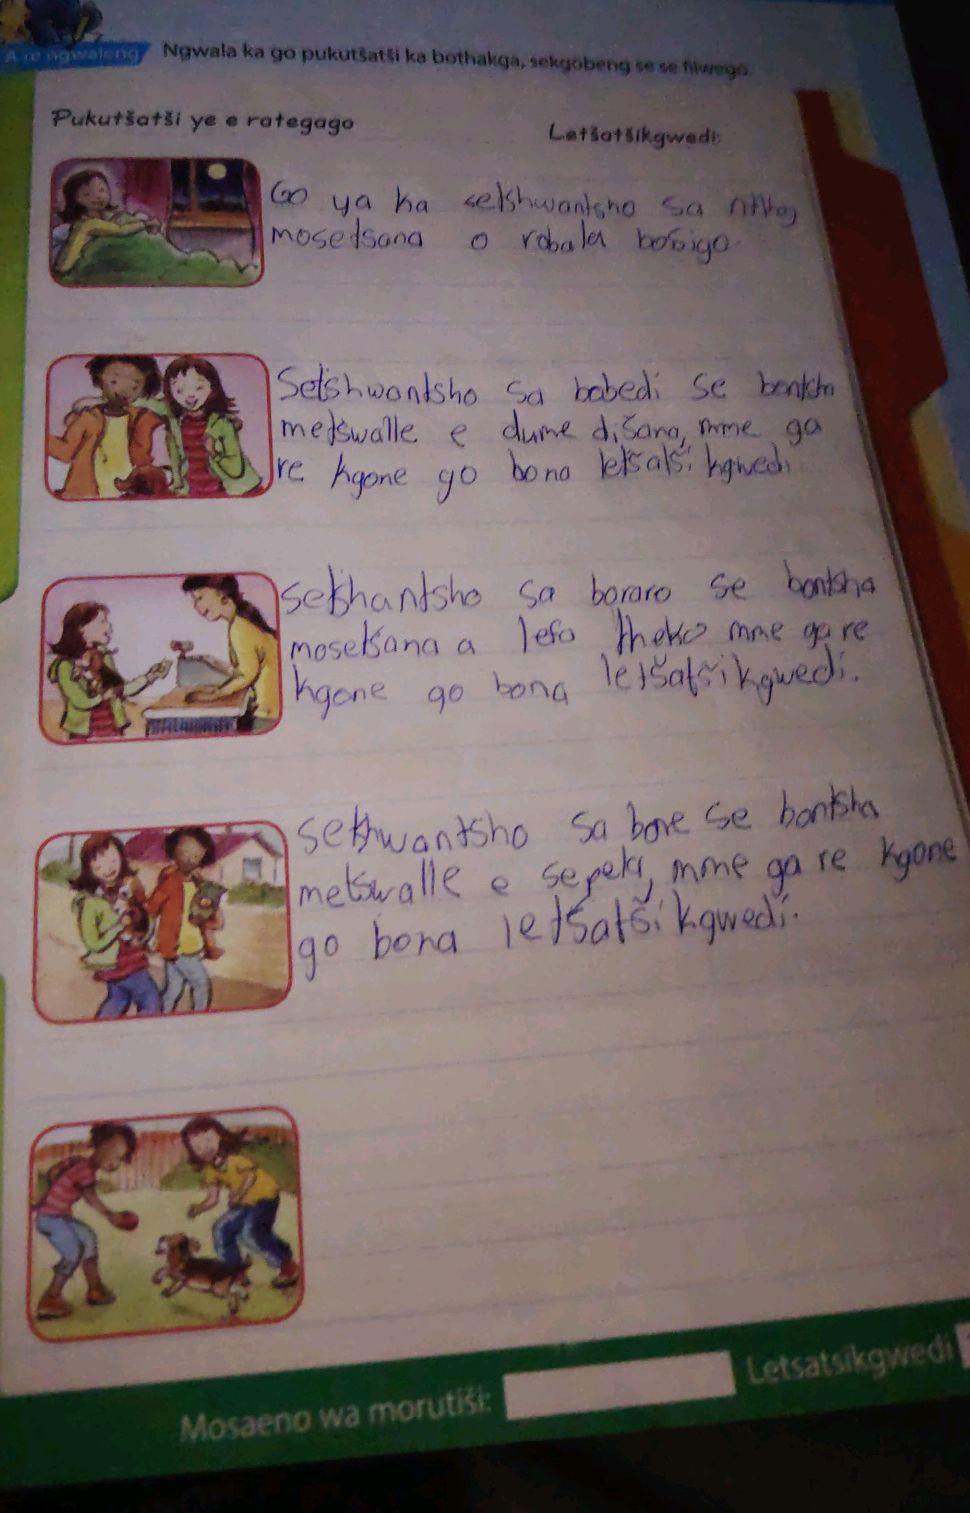 A re ngwaleng
Ngwala ka go pukutšatši ka bothakga, sekgobeng se se filwego.
Pukutšatši ye e rategago
Letšatšikgwedi:
Go ya ka setshwantsho sa
mosetsana o robala bosigo.
Setshwantsho sa babedi se bontsha
metswalle e dume dišana, mme ga
re kgone go bona letšatši kgwedi
setshantsho sa boraro se bontsha
mosetsana a lefa theko mme ga re
kgone go bona letšatšikgwedi.
setshwantsho sa bone se bontsha
metswalle e sepela, mme ga re kgone
go bona letšatši kgwedi.
Mosaeno wa morutiši:
Letsatsikgwedi